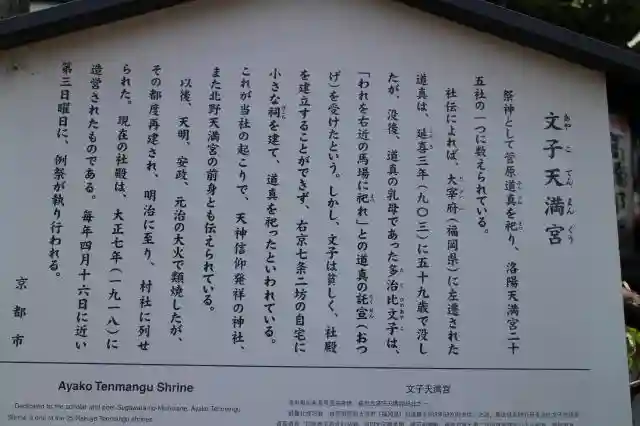 文子天満宮
あやこてんまんぐう
祭神として菅原道真を祀り、洛陽天満宮二十
五社の一つに数えられている。
社伝によれば、大宰府(福岡県)に左遷された
道真は、延喜三年(九〇三)に五十九歳で没し
たが、没後、道真の乳母であった多治比文子は、
「われを右近の馬場に祀れ」との道真の託宣(おつ
げ)を受けたという。しかし、文子は貧しく、社殿
を建立することができず、右京七条二坊の自宅に
小さな祠を建て、道真を祀ったといわれている。
これが当社の起こりで、天神信仰発祥の神社、
また北野天満宮の前身とも伝えられている。
以後、天明、安政、元治の大火で類焼したが、
その都度再建され、明治に至り、村社に列せ
られた。現在の社殿は、大正七年(一九一八)に
造営されたものである。毎年四月十六日に近い
第三日曜日に、例祭が執り行われる。
京都市
Ayako Tenmangu Shrine
Dedicated to the scholar and poet Sugawara no Michizane, Ayako Tenmangu
Shrine is one of the 25 Rakuyo Tenmangu shrines
文子天満宮